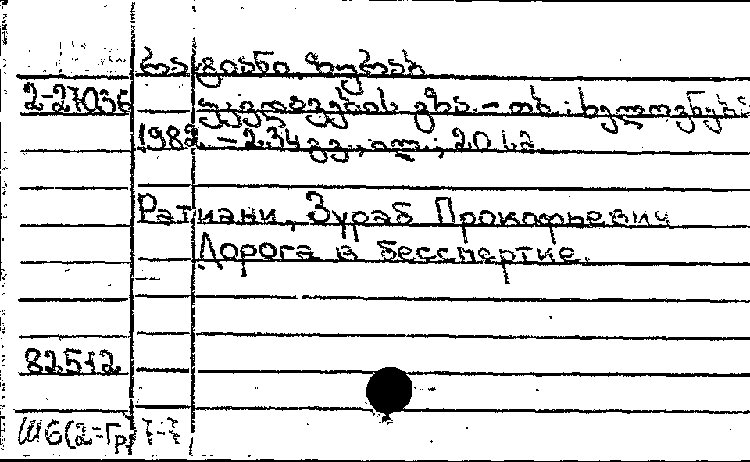 რატიანი, ზურაბ
2-27036 უკვდავების გზა. - თბ.: ხელოვნება
1982. - 234 გვ., ილ.; 20 სმ.
Ратиани, Зураб Прокофьевич
Дорога в бессмертие.
82512
Ш6(2=Гр)